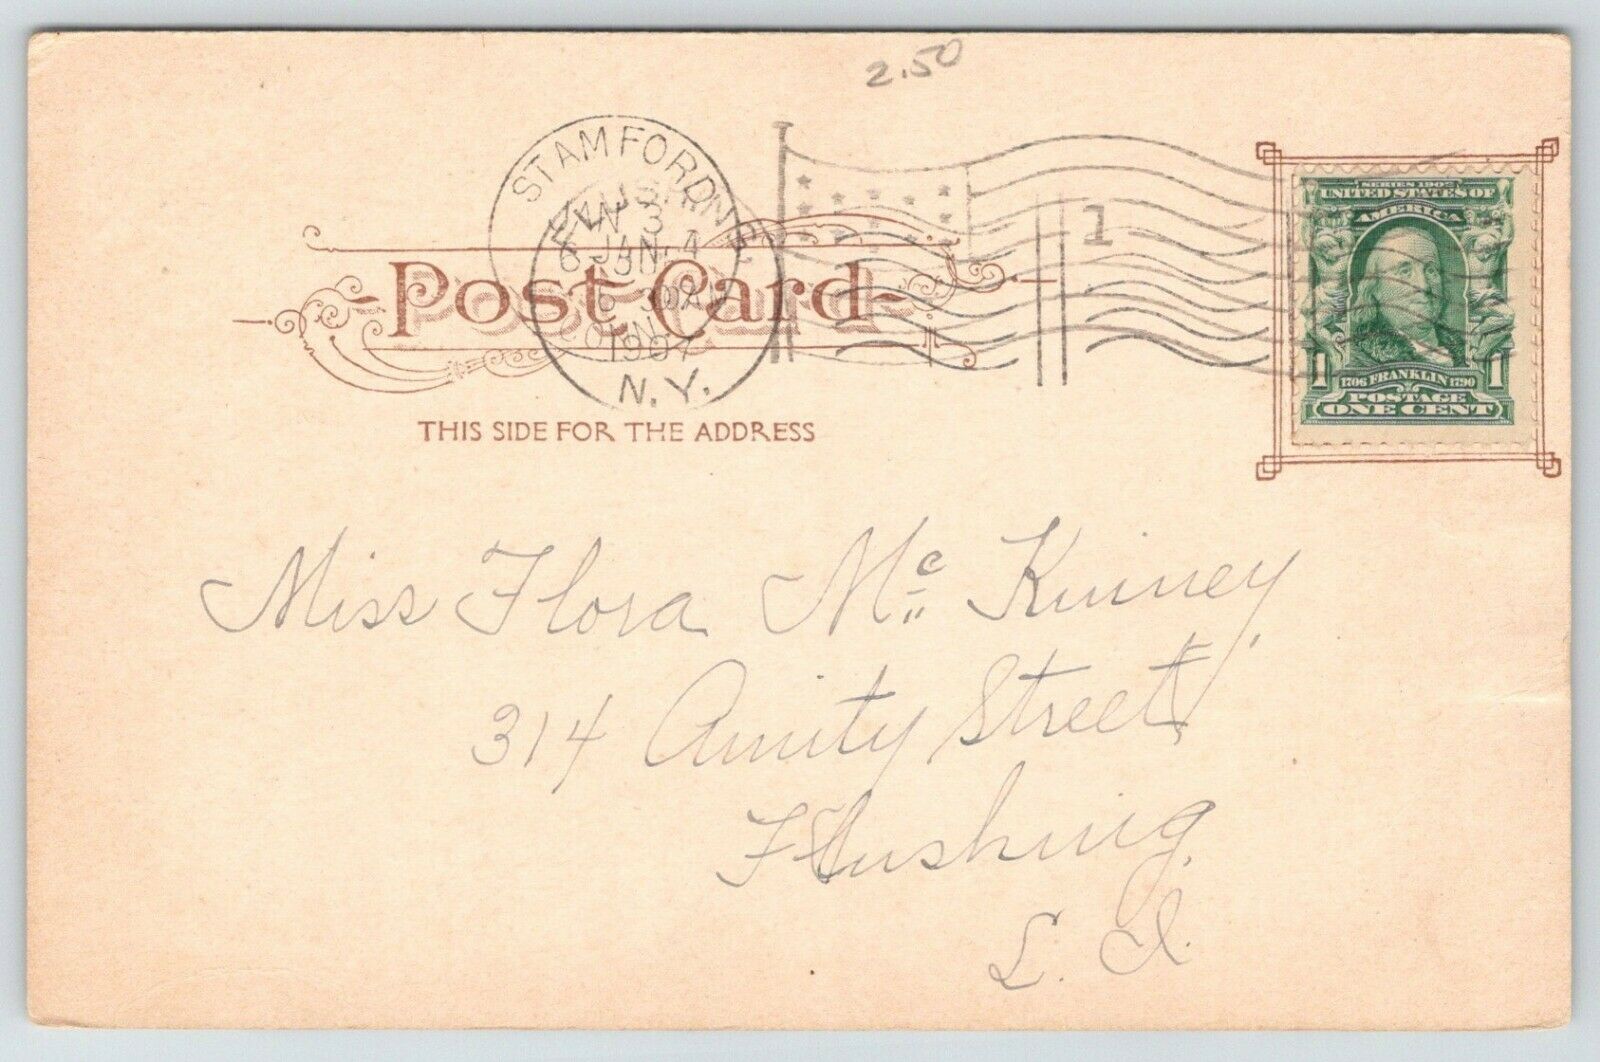 2.50
STAMFORD
JAN 3
JAN 4
1907
N.Y.
1
SERIES 1902
UNITED STATES OF
AMERICA
1 1706 FRANKLIN 1790 1
POSTAGE
ONE CENT
Post Card
THIS SIDE FOR THE ADDRESS
Miss Flora Mc Kinney
314 Amity Street
Flushing
L. I.